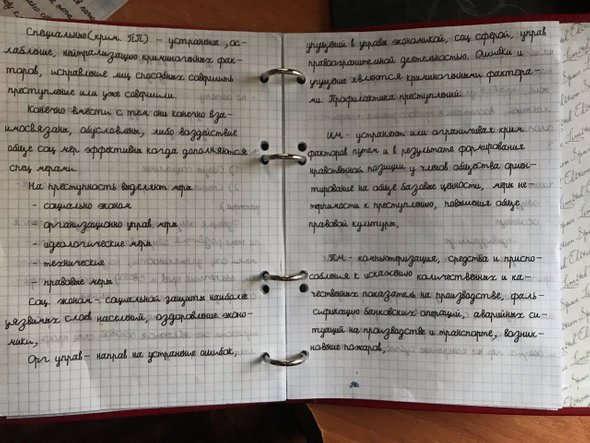 Специальные (крим. ПП) – устранение, ос-
лабление, нейтрализацию криминогенных фак-
торов, исправление лиц способных совершить
преступление или уже совершили.
Конечно вместе с тем они конечно вза-
имосвязаны, обусловлены, либо воздействие
обще соц мер эффективны когда дополняются
спец мерами.
На преступность выделяют меры
- социально эконом
- организационно управ меры
- идеологические меры
- технические
- правовые меры
Соц. эконом - социальной защиты наиболее
уязвимых слоев населений, оздоровление эконо-
мики,
Орг управ - направ на устранение ошибок,
упущений в управы экономикой, соц сферой, управ
правоохранительной деятельностью. Ошибки и
упущение являются криминогенными фактора-
ми. Профилактика преступлений.
ИМ - устраняют или ограничивая крим.
факторов путем и в результате формирования
нравственной позиции у членов общества ориен-
тирование на обще базовые ценности, меры не-
терпимости к преступлению, повышения обще
правовой культуры,
ТМ - компьютеризация, средства и приспо-
собления к искажению количественных и ка-
чественных показатель на производстве, фаль-
сификацию банковских операций, аварийных си-
туаций на производстве и транспорте, возник-
новение пожаров,